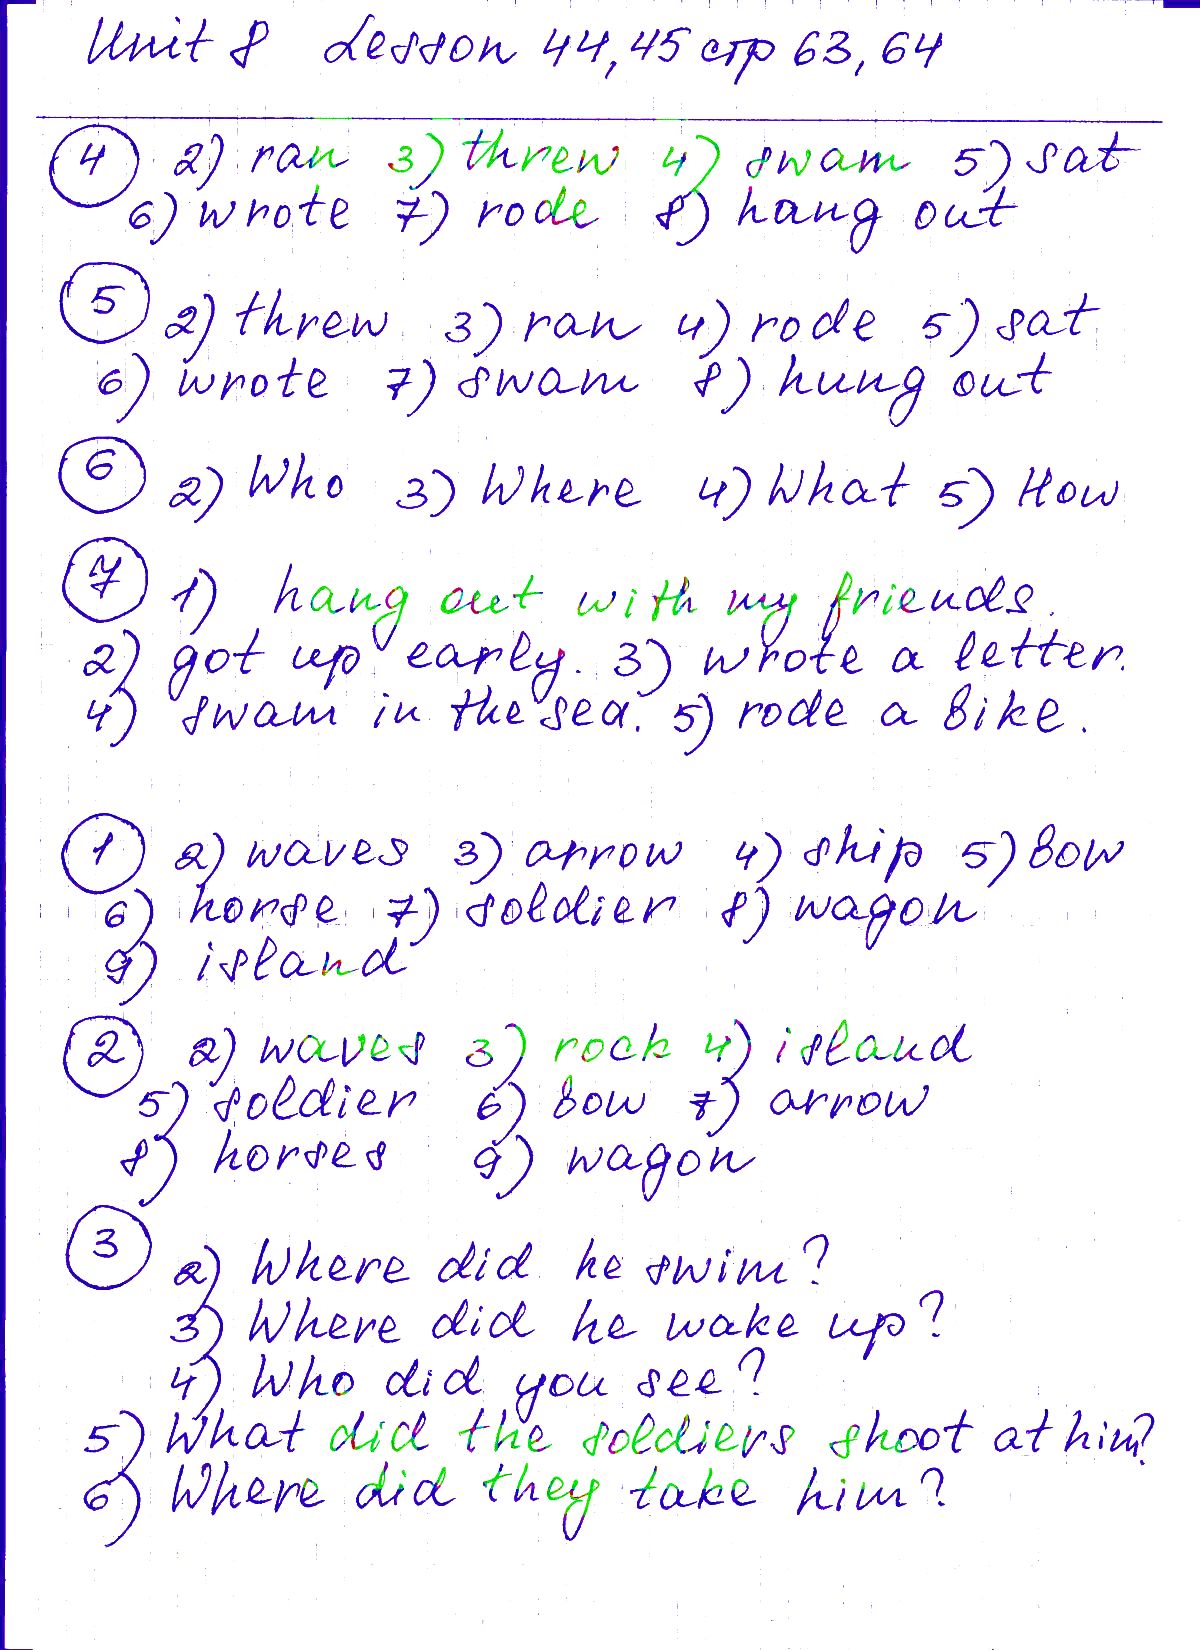 Unit 8 Lesson 44, 45 стр 63, 64
4 2) ran 3) threw 4) swam 5) sat
6) wrote 7) rode 8) hang out
5 2) threw 3) ran 4) rode 5) sat
6) wrote 7) swam 8) hung out
6 2) Who 3) Where 4) What 5) How
7 1) hang out with my friends.
2) got up early. 3) wrote a letter.
4) swam in the sea. 5) rode a bike.
1 2) waves 3) arrow 4) ship 5) bow
6) horse 7) soldier 8) wagon
9) island
2 2) waves 3) rock 4) island
5) soldier 6) bow 7) arrow
8) horses 9) wagon
3 2) Where did he swim?
3) Where did he wake up?
4) Who did you see?
5) What did the soldiers shoot at him?
6) Where did they take him?